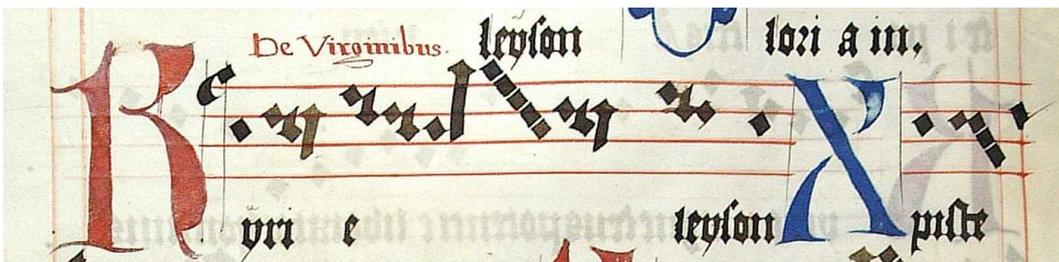 De Virginibus. leyson loria in.
Kyrie leyson Xpiste